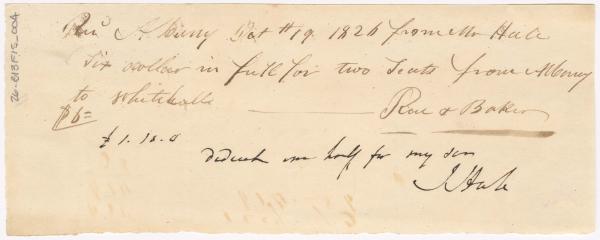 Rec'd Albany Oct 19 1826 from Mr Hale
Six dollars in full for two Seats from Albany
to Whitehall Rice & Baker
$6=
£ 1. 18. 0
Deduct one half for my son
J Hale
26-813F15_004